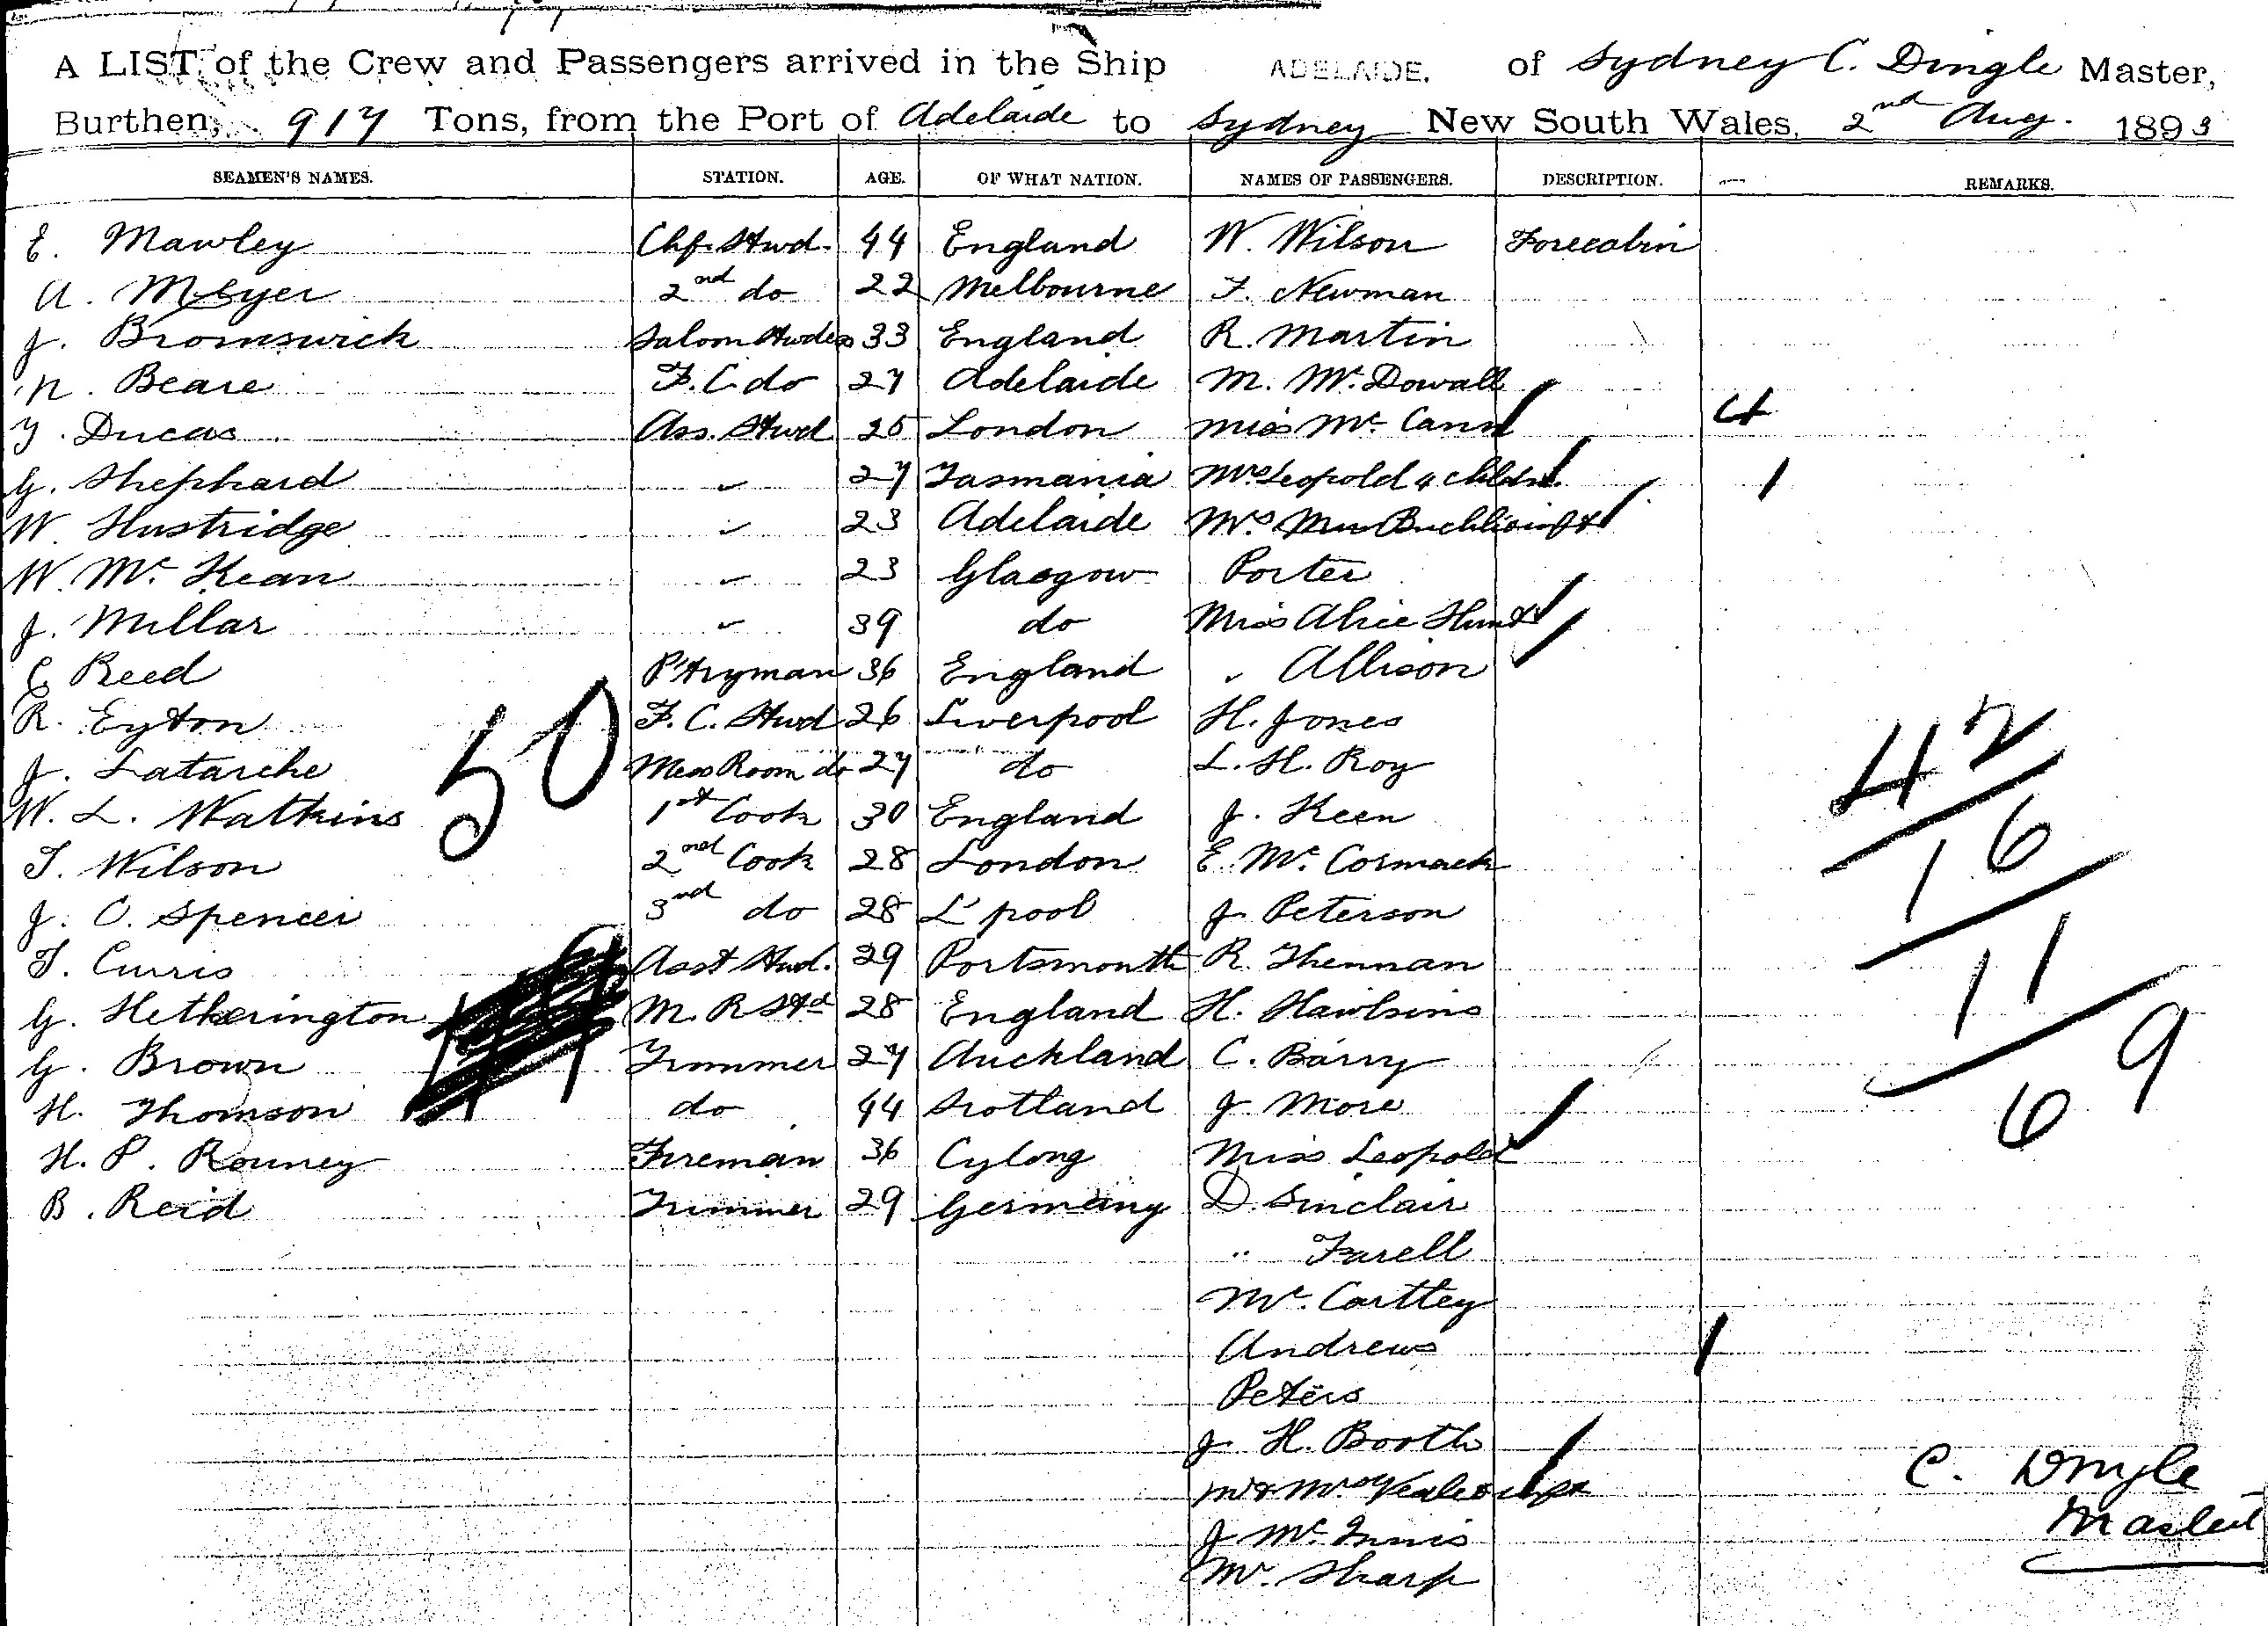 A LIST of the Crew and Passengers arrived in the Ship ADELAIDE. of Sydney C. Dingle Master,
Burthen, 917 Tons, from the Port of Adelaide to Sydney New South Wales, 2nd Aug. 1893
SEAMEN'S NAMES. STATION. AGE. OF WHAT NATION. NAMES OF PASSENGERS. DESCRIPTION. REMARKS.
E. Mawley Chf. Stwd. 44 England W. Wilson Forecabin
A. Meyer 2nd do 22 Melbourne F. Newman
J. Bromswick Saloon Stwdes 33 England R. Martin
N. Beare F. C. do 27 Adelaide M. Mc Dowall
Y. Ducas Ass. Stwd 25 London Miss Mc Cann 4
G. Shephard 27 Tasmania Mrs Leopold 4 childn. 1
W. Hustridge 23 Adelaide Mrs
W. Mc Kean 23 Glasgow Porter
J. Millar 39 do Miss Alice Hunt
C Reed P'tryman 36 England " Allison
R. Eyton F. C. Stwd 26 Liverpool H. Jones
50
J. Latarche Mess Room do 27 do L. H. Roy
42
W. L. Watkins 1st Cook 30 England J. Keen
T. Wilson 2nd Cook 28 London E. Mc Cormack
16
J. O. Spencer 3nd do 28 L'pool J. Peterson
T. Curris Asst Stwd. 29 Portsmouth R. Thennan
11
G. Hetherington M. R Std 28 England H. Hawkins
G. Brown Trimmer 27 Auckland C. Barry
69
H. Thomson do 44 Scotland J. More
H. P. Rouney Fireman 36 Cylong Miss Leopold
B. Reid Trimmer 29 Germany D. Sinclair
" Farell
Mc. Carttey
Andrews
Peters
J. H. Booth
Mr & Mrs
C. Dingle
J Mc Innis
Master
Mr. Sharp